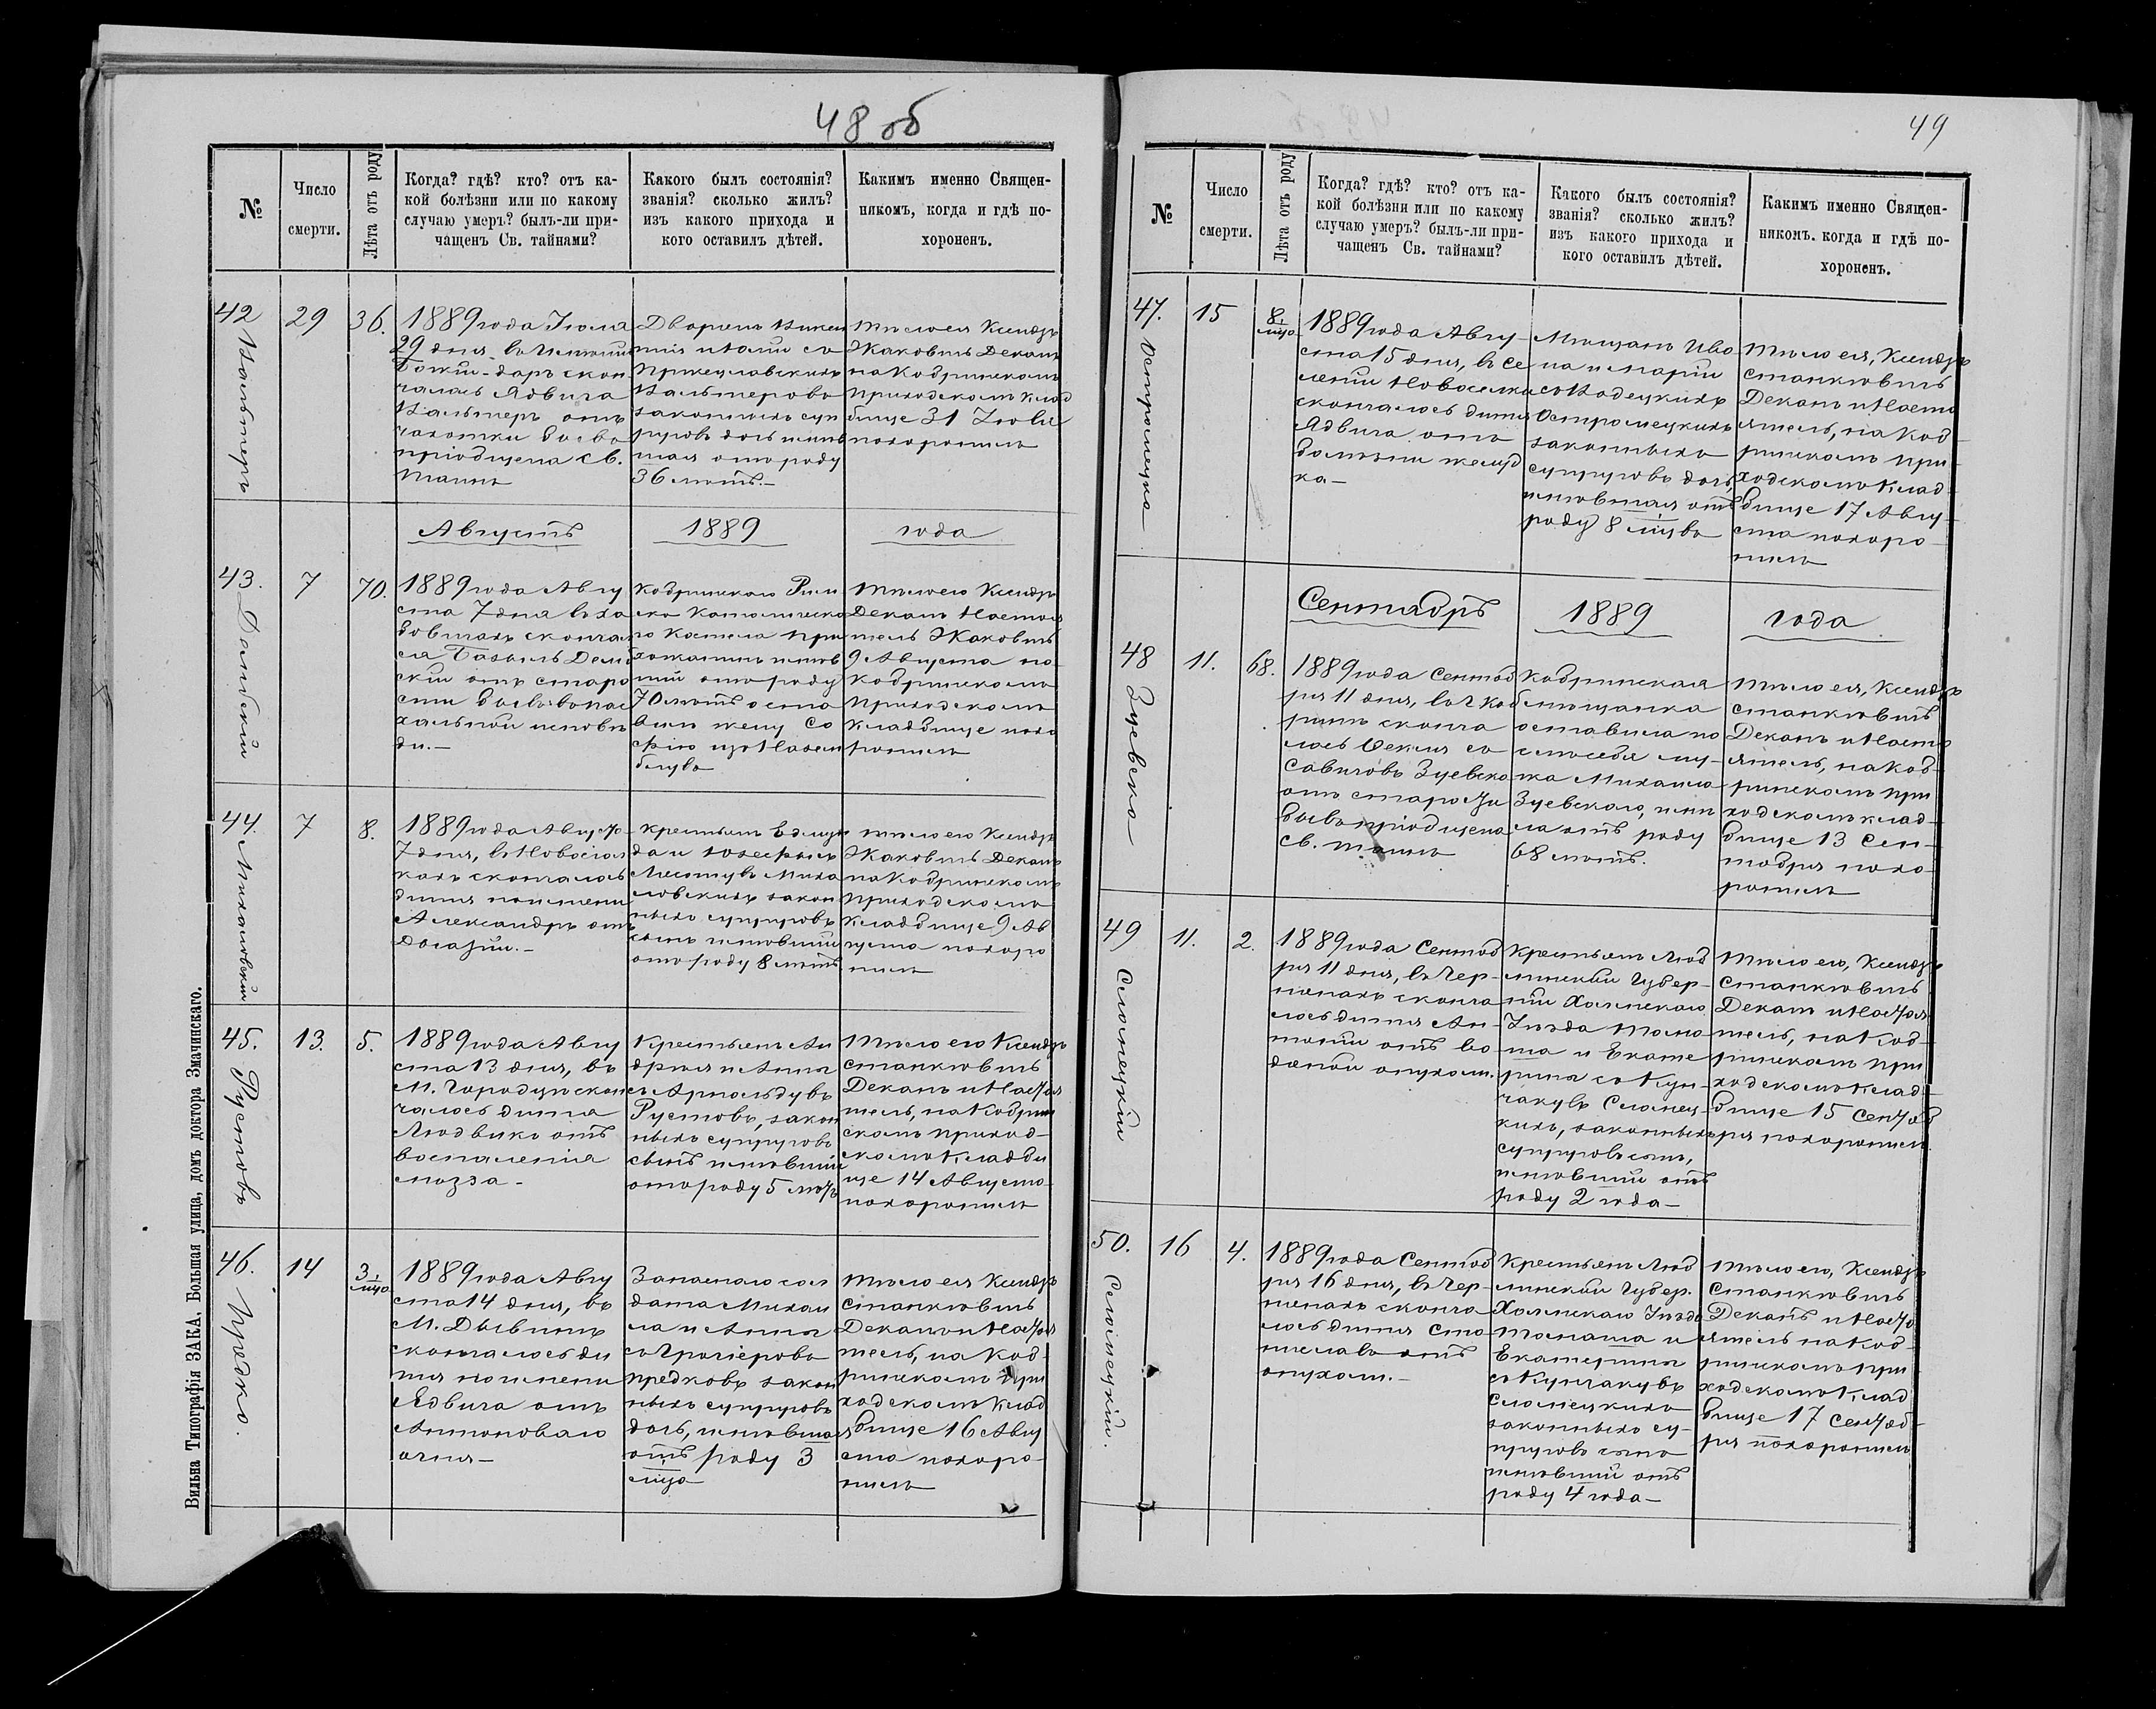 48 об
№
Число
смерти.
Лѣта отъ роду
Когда? гдѣ? кто? отъ ка-
кой болѣзни или по какому
случаю умеръ? былъ-ли при-
чащенъ Св. тайнами?
Какого былъ состоянія?
званія? сколько жилъ?
изъ какого прихода и
кого оставилъ дѣтей.
Какимъ именно Священ-
никомъ, когда и гдѣ по-
хороненъ.
42
Вальтеръ
29
36.
1889 года Іюля
29 дня, въ имѣніи
Божій-даръ скон
чалась Ядвига
Вальтеръ отъ
чахотки бывъ
пріобщена Св.
Таинъ
Дворянъ
Вальтеровъ
законныхъ суп
руговъ дочь имѣв
шая отъ роду
36 лѣтъ.-
Тѣло ея Ксендзъ
Жаковичъ Деканъ
на Кобринскомъ
приходскомъ клад
бище 31 Іюля
похоронилъ
Августъ 1889 года
43.
Дембскій
7
70.
1889 года Авгу
ста 7 дня въ
скончал
ся Базыль Демб
скій отъ старо
сти
исповѣ
ди.-
Кобринскаго Рим
ско Католическа
го Костела при
хожанинъ имѣв
шій отъ роду
70 лѣтъ оста
вилъ жену Со
фію изъ
Тѣло его Ксендзъ
Деканъ Настоя
тель Жаковичъ
9 Августа на
Кобринскомъ
приходскомъ
кладбище похо
ронилъ
44.
Михаловскій
7
8.
1889 года Августа
7 дня, въ Новосіол
кахъ скончалось
дитя по имени
Александръ отъ
Крестьянъ
Миха
ловскихъ закон
ныхъ супруговъ
сынъ имѣвшій
отъ роду 8 лѣтъ
Тѣло его Ксендзъ
Жаковичъ Деканъ
на Кобринскомъ
приходскомъ
кладбище 9 Ав
густа похоро
нилъ
45.
Рустовъ
13.
5.
1889 года Авгу
ста 13 дня, въ
М. Городцѣ скон
чалось дитя
Людвикъ отъ
воспаленія
мозга-
Крестьянъ Ан
дрея и Анны
съ Арнольдувъ
Рустовъ, закон
ныхъ супруговъ
сынъ имѣвшій
отъ роду 5 лѣтъ
Тѣло его Ксендзъ
Станкевичъ
Деканъ и Настоя
тель, на Кобрин
скомъ приход-
скомъ кладби
ще 14 Августа
похоронилъ
46.
Предко.
14
3
мца
1889 года Авгу
ста 14 дня, въ
М. Дывинѣ
скончалось ди
тя по имени
Ядвига отъ
Антоноваго
огня-
Запаснаго сол
дата Михаи
ла и Анны
предковъ закон
ныхъ супруговъ
дочь, имѣвшая
отъ роду 3
мца
Тѣло ея Ксендзъ
Станкевичъ
Деканъ и Настоя
тель, на Коб-
ринскомъ при
ходскомъ клад
бище 16 Авгу
ста похоро-
нилъ
Вильна Типографія ЗАКА, Большая улица, домъ доктора Змачинскаго.
49
№
Число
смерти.
Лѣта отъ роду
Когда? гдѣ? кто? отъ ка-
кой болѣзни или по какому
случаю умеръ? былъ-ли при-
чащенъ Св. тайнами?
Какого былъ состоянія?
званія? сколько жилъ?
изъ какого прихода и
кого оставилъ дѣтей.
Какимъ именно Священ-
никомъ. когда и гдѣ по-
хороненъ.
47.
Остромецка
15
8.
мцо
1889 года Авгу-
ста 15 дня, въ се
леніи Новоселки
скончалось дитя
Ядвига отъ
болѣзни желуд
ка-
Мѣщанъ Ива
на и Маріи
Остромецкихъ
законныхъ
супруговъ дочь,
имѣвшая отъ
роду 8 мцвъ
Тѣло ея, Ксендзъ
Станкевичъ
Деканъ и Насто
ятель, на Коб-
ринскомъ при-
ходскомъ клад-
бище 17 Авгу-
ста похоро-
нилъ
Сентябрь 1889 года
48
Зуевска
11.
68.
1889 года Сентяб
ря 11 дня, въ г. Коб
ринѣ сконча
лась Фекля съ
Савичовъ Зуевска
отъ старости
бывъ пріобщена
Св. Таинъ
Кобринская
мѣщанка
оставила по
слѣ себя му-
жа Михаила
Зуевскаго, имѣ
ла отъ роду
68 лѣтъ.
Тѣло ея, Ксендзъ
Станкевичъ
Деканъ и Насто
ятель, на Коб-
ринскомъ при
ходскомъ клад-
бище 13 Сен-
тября похо-
ронилъ
49
Сломецкій
11.
2.
1889 года Сентяб
ря 11 дня, въ Чер-
нянахъ сконча
лось дитя Ан-
тоній отъ во
дяной опухоли.
Крестьянъ Люб
линской Губер-
ніи Холмскаго
Уѣзда Тома
ша и Екате
рины съ Кун-
чакувъ Сломец-
кихъ, законныхъ
супруговъ сынъ,
имѣвшій отъ
роду 2 года-
Тѣло его, Ксендзъ
Станкевичъ
Деканъ и Настоя
тель, на Коб-
ринскомъ при
ходскомъ клад-
бище 15 Сентяб
ря похоронилъ.
50.
Сломецкій.
16
4.
1889 года Сентяб
ря 16 дня, въ Чер-
нянахъ сконча
лось дитя Ста-
ниславъ отъ
опухоли.-
Крестьянъ Люб
линской Губер.
Холмскаго Уѣзда
Томаша и
Екатерины
съ Кунчакувъ
Сломецкихъ
законныхъ су-
пруговъ сынъ
имѣвшій отъ
роду 4 года-
Тѣло его, Ксендзъ
Станкевичъ
Деканъ и Насто
ятель на Коб-
ринскомъ при
ходскомъ клад
бище 17 Сентяб-
ря похоронилъ